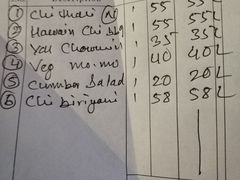 Description
① Chi thali (N) 1 55 55
② Hawain Chi 1 55 55
③ Veg Chowmin 1 35 35
④ Veg mo.mo 1 40 40
⑤ Cumber Salad 1 20 20
⑥ Chi biriyani 1 58 58